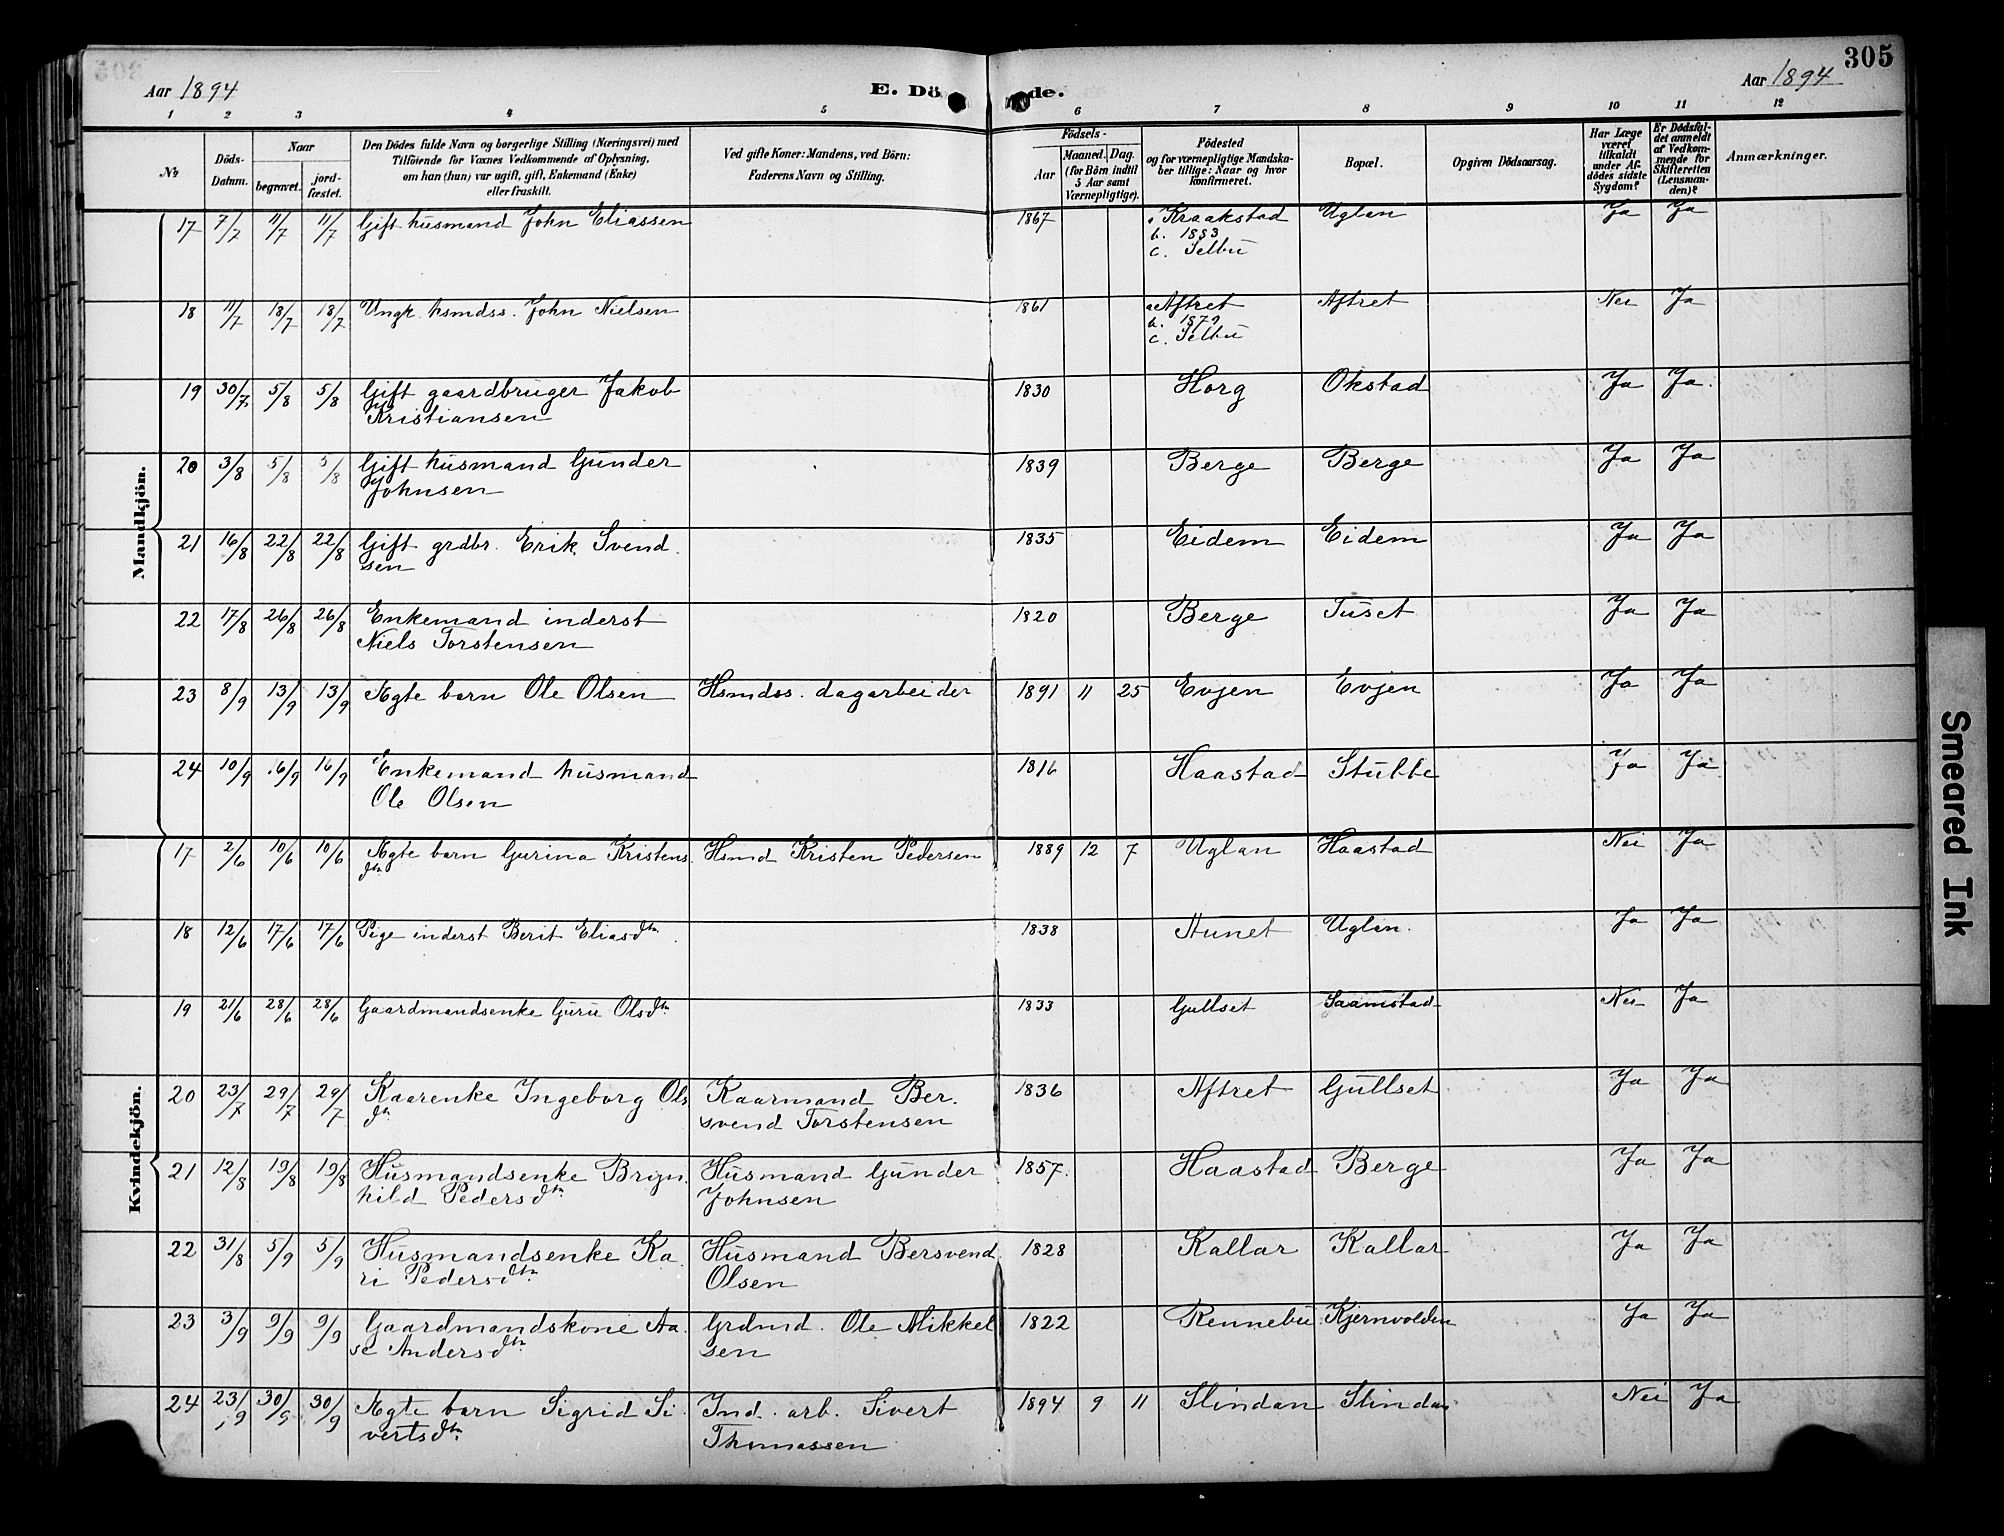 305
Aar 1894 E. Döde. Aar 1894
1 2 3 4 5 6 7 8 9 10 11 12
№ Döds-Datum. Naar begravet. jordfæstet. Den Dödes fulde Navn og borgerlige Stilling (Næringsvei) med Tilföiende for Voxnes Vedkommende af Oplysning, om han (hun) var ugift, gift, Enkemand (Enke) eller fraskilt. Ved gifte Koner: Mandens, ved Börn: Faderens Navn og Stilling. Födsels- Aar Maaned. Dag. (for Börn indtil 5 Aar samt Værnepligtige). Födested og for værnepligtige Mandskaber tillige: Naar og hvor konfirmeret. Bopæl. Opgiven Dödsaarsag. Har Læge været tilkaldt under Afdödes sidste Sygdom? Er Dödsfaldet anmeldt af Vedkommende for Skifteretten (Lensmanden)? Anmærkninger.
Mandkjön.
17 7/7 11/7 11/7 Gift husmand John Eliassen 1867 a Kraakstad Uglan Ja Ja
b. 1883
c. Selbu
18 11/7 18/7 18/7 Ungk. hsmdss. John Nielsen 1861 a Aftret Aftret Nei Ja
b. 1879
c. Selbu
19 30/7 5/8 5/8 Gift gaardbruger Jakob 1830 Horg Okstad Ja Ja.
Kristiansen
20 3/8 5/8 5/8 Gift husmand Gunder 1839 Berge Berge Ja Ja
Johnsen
21 16/8 22/8 22/8 Gift grdbr. Erik Svend. 1835 Eidem Eidem Ja Ja
sen
22 17/8 26/8 26/8 Enkemand inderst 1820 Berge Tuset Ja Ja
Niels Torstensen
23 8/9 13/9 13/9 Ægte barn Ole Olsen Hsmdss. dagarbeider 1891 11 25 Evjen Evjen Ja Ja
24 10/9 16/9 16/9 Enkemand husmand 1816 Haastad Stubbe Ja Ja
Ole Olsen
Kvindekjön.
17 2/6 10/6 10/6 Ægte barn Gurina Kristens Hsmd Kristen Pedersen 1889 12 7 Uglan Haastad Nei Ja
dtr
18 12/6 17/6 17/6 Pige inderst Berit Eliasdtr. 1838 Hunet Uglan. Ja Ja
19 21/6 28/6 28/6 Gaardmandsenke Guru Olsdtr. 1833 Gullset Saamstad Nei Ja
20 23/7 29/7 29/7 Kaarenke Ingeborg Ols Kaarmand Ber. 1836 Aftret Gullset Ja Ja
dtr svend Torstensen
21 12/8 19/8 19/8 Husmandsenke Bryn. Husmand Gunder 1857. Haastad Berge Ja Ja
hild Pedersdtr. Johnsen
22 31/8 5/9 5/9 Husmandsenke Ka Husmand Bersvend 1828 Kallar Kallar Ja Ja
ri Pedersdtr. Olsen
23 3/9 9/9 9/9 Gaardmandskone Aa. Grdmd. Ole Mikkel 1822 Rennebu Kjernvolden Ja Ja
se Andersdtr. sen
24 23/9 30/9 30/9 Ægte barn Sigrid Si. Ind. arb. Sivert 1894 9 11 Slindan Slindan Nei Ja
vertsdtr. Thomassen
Smeared Ink